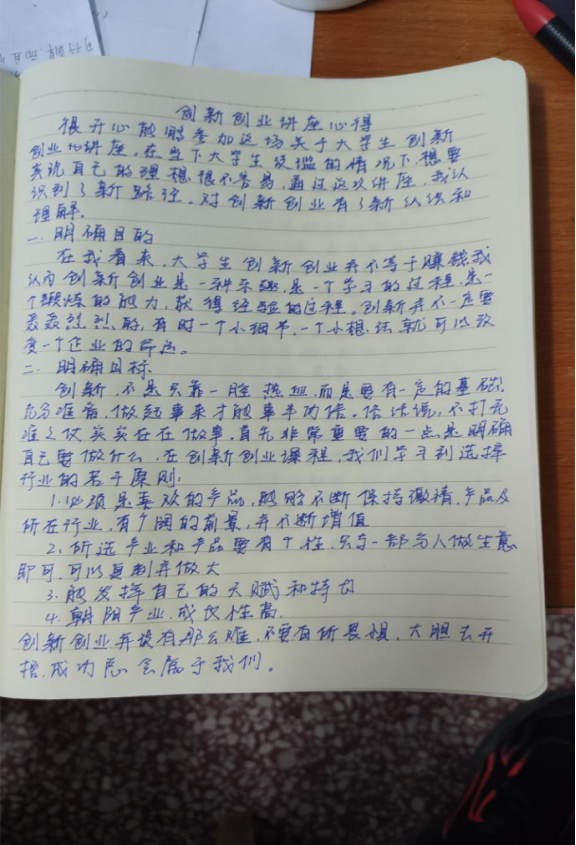 创新创业讲座心得
很开心能够参加这场关于大学生创新
创业的讲座,在当下大学生泛滥的情况下,想要
实现自己的理想很不容易,通过这次讲座,我认
识到了新路径,对创新创业有了新认识和
理解。
一.明确目的
在我看来,大学生创新创业并不等于赚钱,我
认为创新创业是一种乐趣,是一个学习的过程,是一
个锻炼的能力,获得经验的过程。创新并不一定要
轰轰烈烈的,有时一个小细节,一个小想法就可以改
变一个企业的命运。
二.明确目标
创新,不是只靠一腔热血,而是要有一定的基础,
充分准备,做起事来才能事半功倍。俗话说,不打无
准之仗实实在在做事,首先非常重要的一点是明确
自己要做什么,在创新创业课程,我们学习到选择
行业的若干原则:
1.必须是喜欢的产品,能够不断保持激情,产品及
所在行业,有广阔的前景,并不断增值
2、所选产业和产品要有个性,只与一部分人做生意
即可,可以复制并做大
3.能发挥自己的天赋和特长
4.朝阳产业,成长性高.
创新创业并没有那么难,不要有所畏惧,大胆去开
拓,成功总会属于我们。